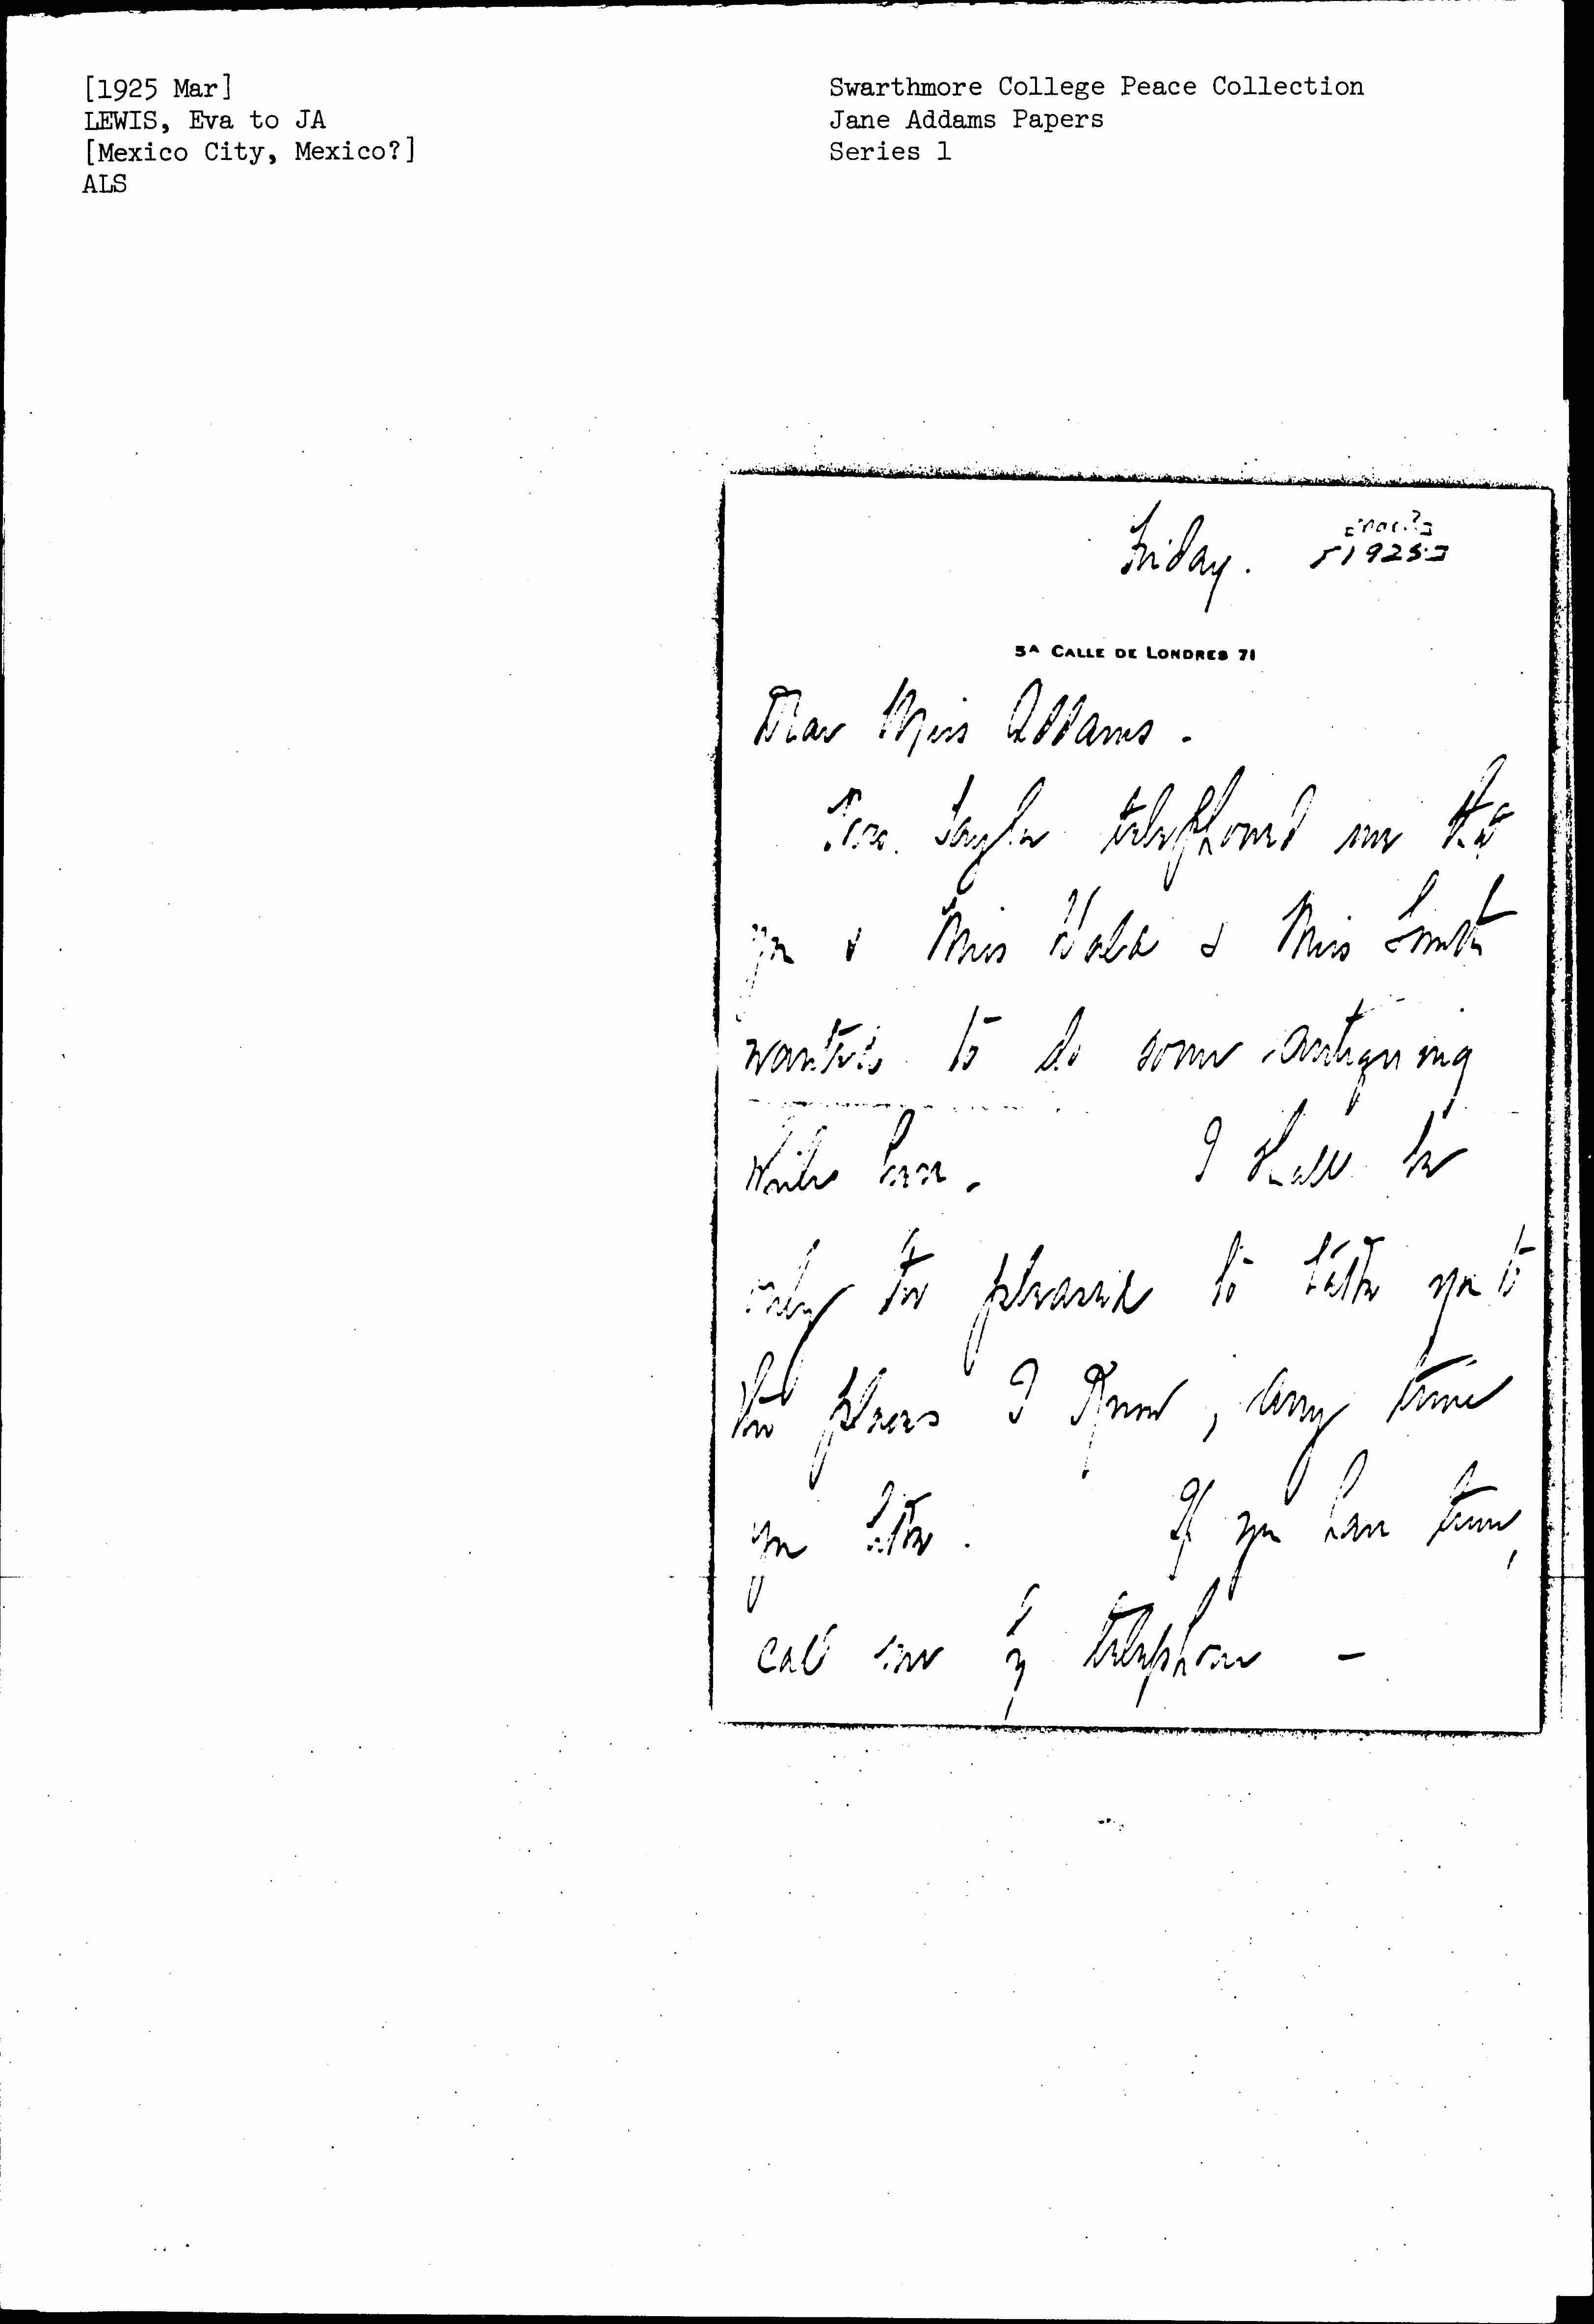 [1925 Mar]
LEWIS, Eva to JA
[Mexico City, Mexico?]
ALS
Swarthmore College Peace Collection
Jane Addams Papers
Series 1
Friday. [Mar.?]
[1925]
5A CALLE DE LONDRES 71
Dear Miss Addams.
telephoned me that
you & Miss Wald & Miss Smith
wanted to do some antiquing
while here. I shall be
only too pleased to take you to
the places I know, any time
you like. If you have time,
call me by telephone –